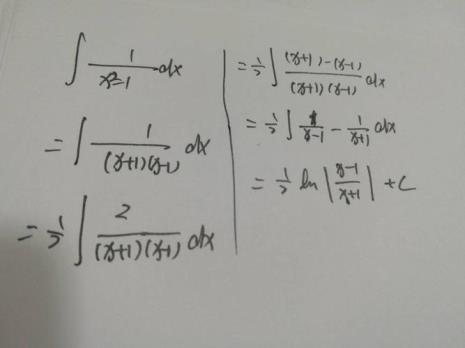 ∫ 1/(x²-1) dx
= ∫ 1/((x+1)(x-1)) dx
= 1/2 ∫ 2/((x+1)(x-1)) dx
= 1/2 ∫ ((x+1)-(x-1))/((x+1)(x-1)) dx
= 1/2 ∫ 1/(x-1) - 1/(x+1) dx
= 1/2 ln |(x-1)/(x+1)| + C